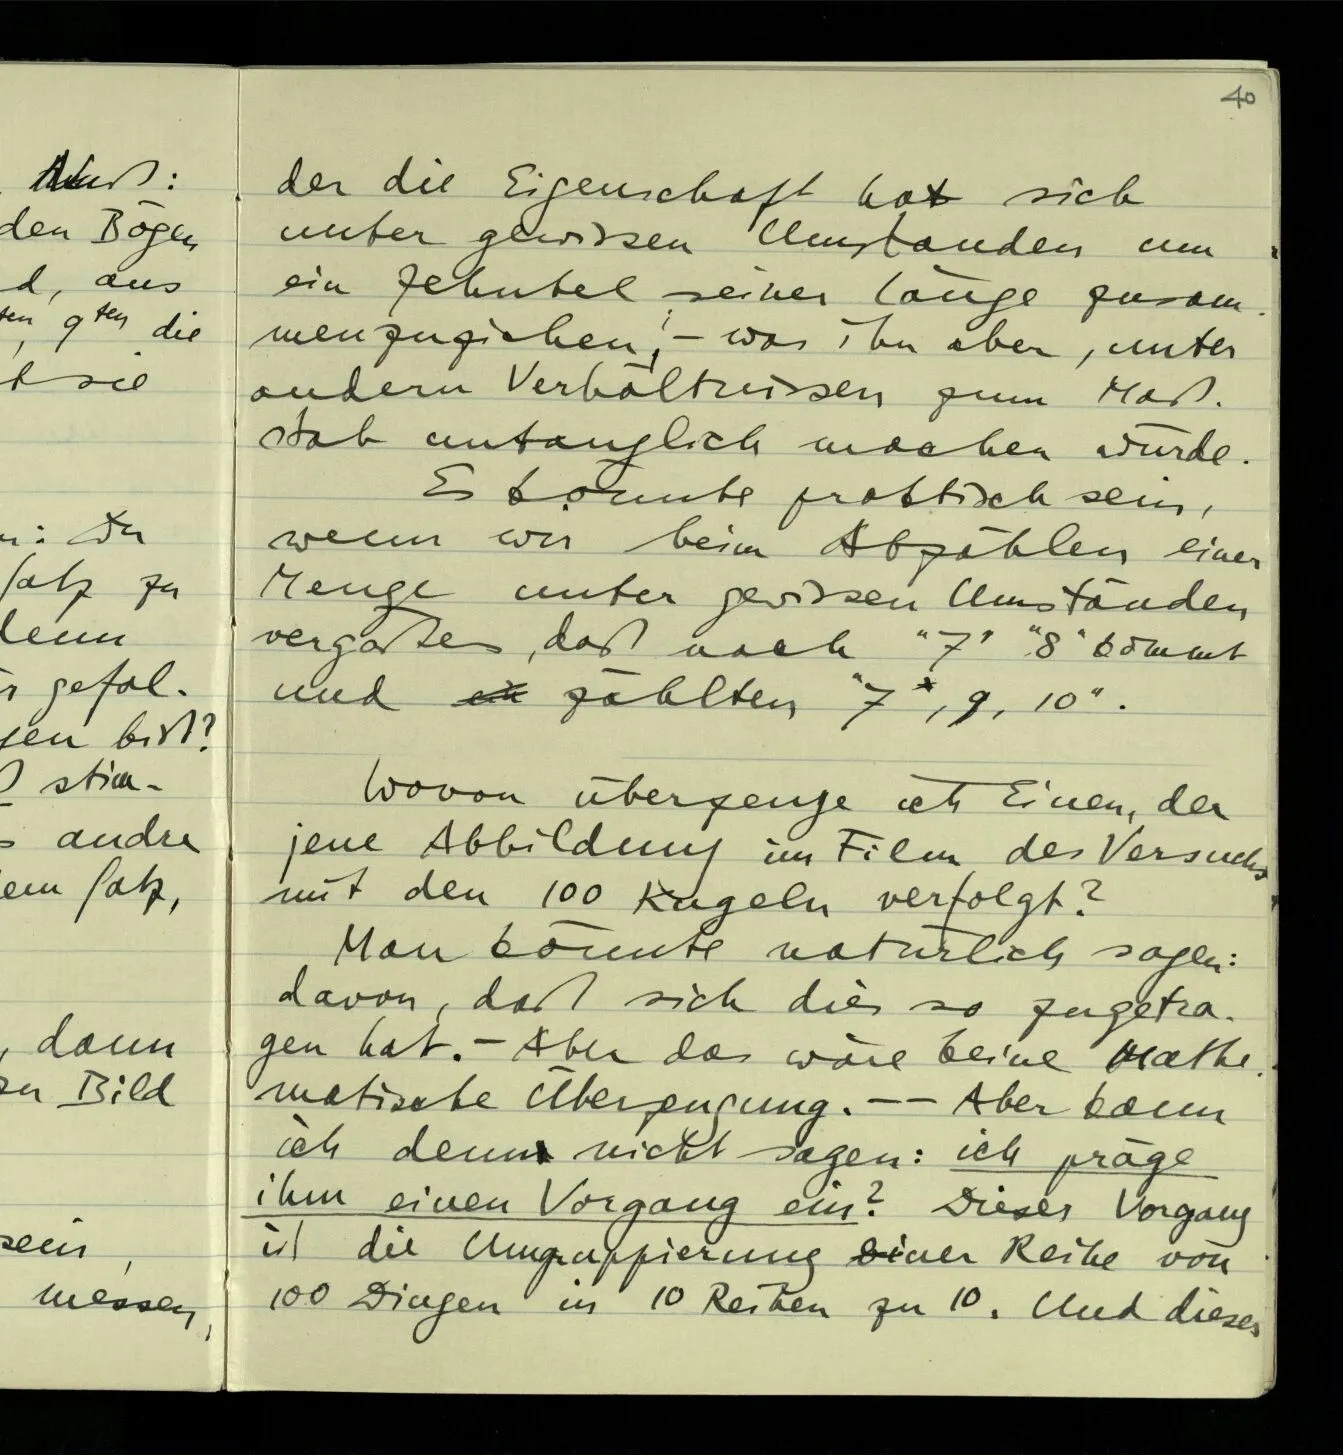 40
Maß:
den Bögen
d, aus
ten, 9ten die
t sie
n: Du
Satz zu
denn
gefol-
gen bist?
stim-
s andre
em Satz,
, dann
Bild
sein,
messen,
der die Eigenschaft hat sich
unter gewissen Umständen um
ein Zehntel seiner Länge zusam-
menzuziehen; – was ihn aber, unter
andern Verhältnissen zum Maß-
stab untauglich machen würde.
Es könnte praktisch sein,
wenn wir beim Abzählen einer
Menge unter gewissen Umständen
vergäßen, daß nach "7" "8" kommt
und zählten "7, 9, 10".
Wovon überzeuge ich Einen, der
jene Abbildung im Film des Versuchs
mit den 100 Kugeln verfolgt?
Man könnte natürlich sagen:
davon, daß sich dies so zugetra-
gen hat. – Aber das wäre keine mathe-
matische Überzeugung. –– Aber kann
ich denn nicht sagen: ich präge
ihm einen Vorgang ein? Dieser Vorgang
ist die Umgruppierung einer Reihe von
100 Dingen in 10 Reihen zu 10. Und dieser